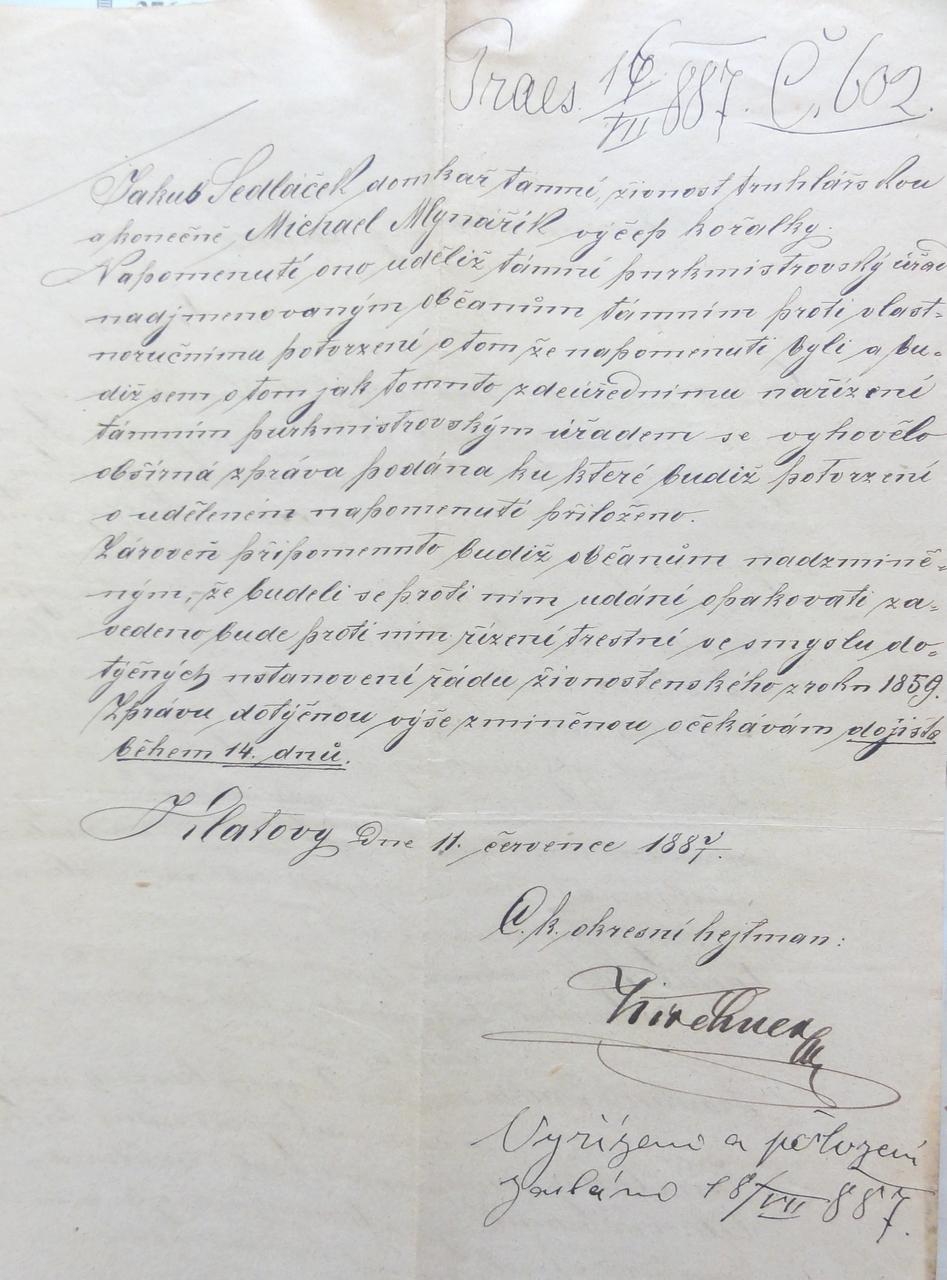 Praes. 16/VII 887. Č. 602.
Jakub Sedláček domkař támní, živnost truhlářskou
a konečně, Michael Mlynářík výčep kořalky.
Napomenutí ono uděliž támní purkmistrovský úřad
nadjmenovaným občanům támním proti vlast-
noručnímu potvrzení o tom že napomenuti byli a bu-
diž sem o tom jak tomuto zdeúřednímu nařízení
támním purkmistrovským úřadem se vyhovělo
obšírná zpráva podána ku které budiž potvrzení
o uděleném napomenutí přiloženo.
Zároveň připomenuto budiž občanům nadzmíně-
ným, že budeli se proti nim udání opakovati za-
vedeno bude proti nim řízení trestní ve smyslu do-
týčných ustanovení řádu živnostenského z roku 1859.
Zprávu dotýčnou výše zmíněnou očekávám dojista
během 14. dnů.
Klatovy Dne 11. července 1887.
C. k. okresní hejtman:
Vyřízeno a potvrzení
zasláno 18/VII 887.